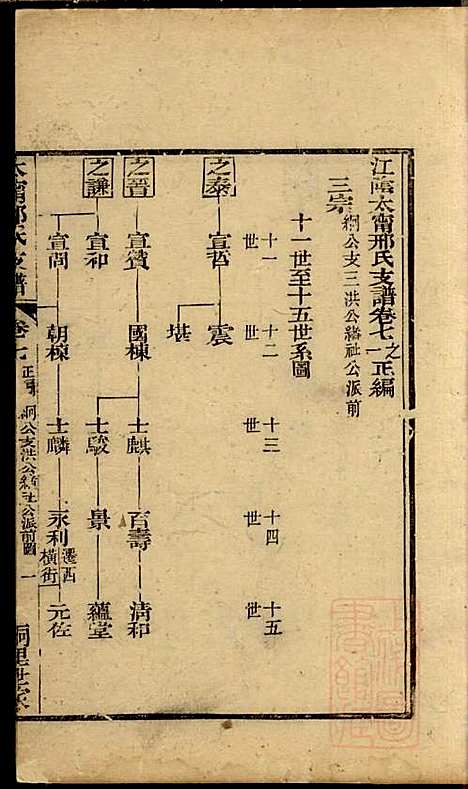 江陰太甯邢氏支譜卷七之一正編
三宗 綱公支三洪公緒祉公派前
十一世至十五世系圖
十一世 十二世 十三世 十四世 十五世
之泰 宣哲 震
堪
之晋 宣贊 國棟 士麒 百壽 清和
士駿 景 蘊堂
之謙 宣和
宣問 朝棟 士麟 永利 遷西橫街 元佐
太甯邢氏支譜 卷七 正編 綱公支洪公緒祉公派前圖 一